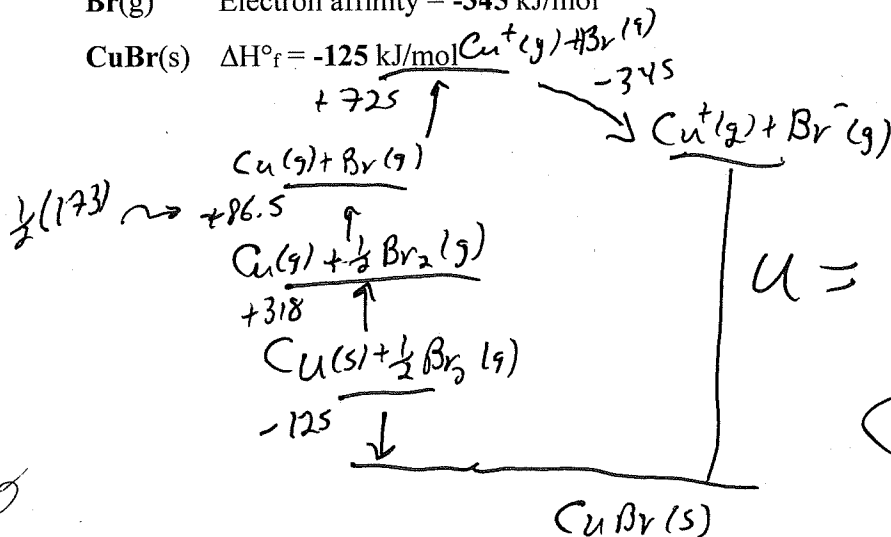 Br(g) Electron affinity = -345 kJ/mol
CuBr(s) ΔH°f = -125 kJ/mol
Cu⁺(g) + Br(g)
+725
-345
Cu⁺(g) + Br⁻(g)
Cu(g) + Br(g)
½(173) → +86.5
Cu(g) + ½ Br₂(g)
U =
+318
Cu(s) + ½ Br₂(g)
-125
CuBr(s)